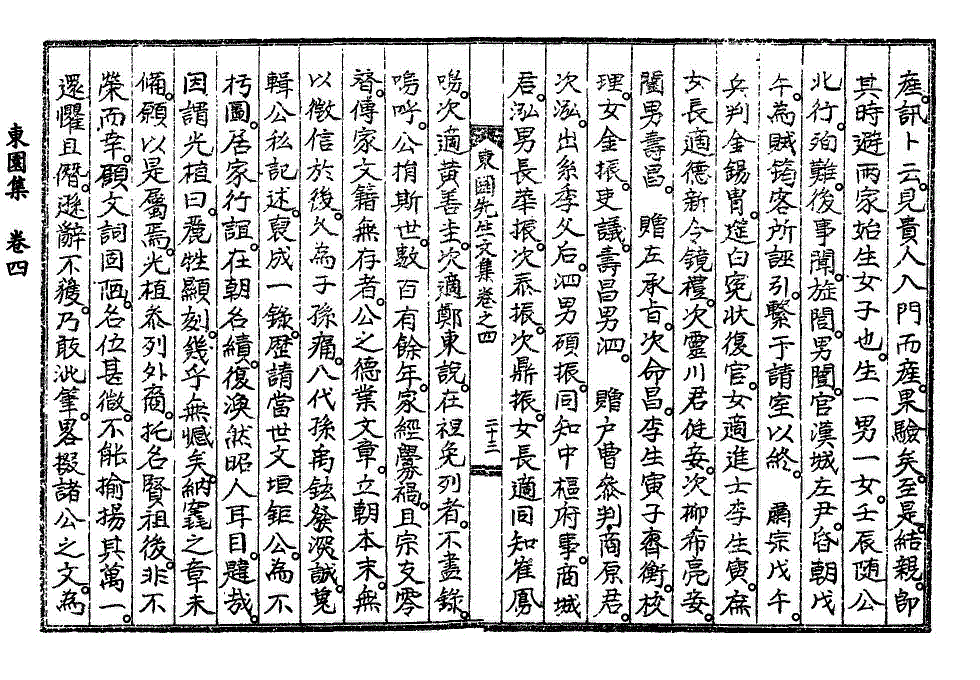 産訊卜云見貴人入門而産果驗矣至是結親卽
其時避兩家始生女子也生一男一女壬辰随公
北行殉難後事聞旋閭男闓官漢城左尹昏朝戊
午爲賊筠客所誣引繫于請室以終 肅宗戊午
兵判金錫胄筵白寃狀復官女適進士李生寅庶
女長適德新令鏡禮次靈川君侹妾次柳希亮妾
闓男壽昌 贈左承旨次命昌李生寅子齊衡校
理女金振吏議壽昌男泗 贈户曹叅判商原君
次泓出系季父后泗男碩振同知中樞府事商城
君泓男長華振次泰振次鼎振女長適同知崔鳳
東園先生文集卷之四 二十三
鳴次適黃善圭次適鄭東說在袒免列者不盡錄
嗚呼公捐斯世數百有餘年家經舋禍且宗支零
替傳家文籍無存者公之德業文章立朝本末無
以徵信於後久為子孫痛八代孫禹鉉發深誠蒐
輯公私記述裒成一錄歷請當世文垣鉅公為不
朽圖居家行誼在朝名績復渙然昭人耳目韙哉
因謂光植曰麗牲顯刻幾乎無憾矣納竁之章未
備願以是屬焉光植忝列外裔托名賢祖後非不
榮而幸顧文詞固陋名位甚微不能揄揚其萬一
還懼且僭遜辭不獲乃敢泚筆畧掇諸公之文為
東園集 卷四